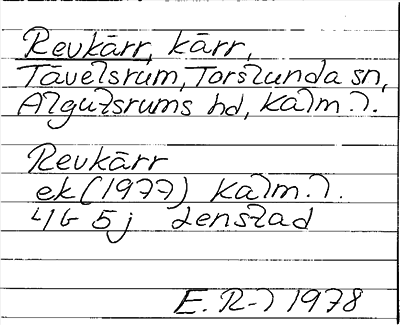 Revkärr, kärr,
Tävelsrum, Torslunda sn,
Algutsrums hd, Kalm. l.
Revkärr
ek (1977) Kalm. l.
4G 5j denstad
E. R-l 1978